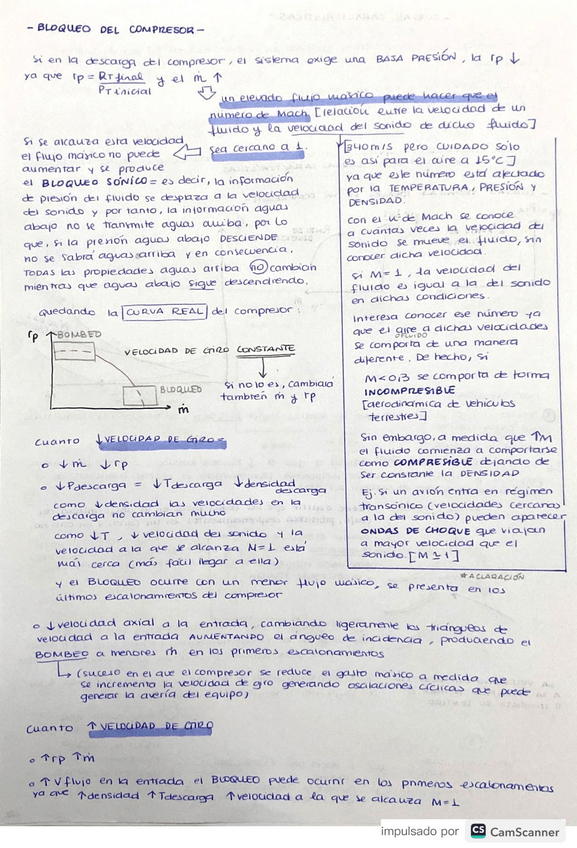 - BLOQUEO DEL COMPRESOR -
Si en la descarga del compresor, el sistema exige una BAJA PRESIÓN, la rp ↓
ya que rp = PT final / PT inicial y el ṁ ↑
un elevado flujo másico puede hacer que el
número de Mach [relación entre la velocidad de un
fluido y la velocidad del sonido de dicho fluido]
sea cercano a 1.
Si se alcanza esta velocidad
el flujo másico no puede
aumentar y se produce
el BLOQUEO SÓNICO = es decir, la información
de presión del fluido se desplaza a la velocidad
del sonido y por tanto, la información aguas
abajo no se tranmite aguas arriba, por lo
que, si la presión aguas abajo DESCIENDE
no se sabrá aguas arriba y en consecuencia,
TODAS las propiedades aguas arriba no cambian
mientras que aguas abajo sigue descendiendo.
quedando la CURVA REAL del compresor:
rp
BOMBEO
VELOCIDAD DE GIRO CONSTANTE
BLOQUEO
ṁ
si no lo es, cambiará
también ṁ y rp
[340 m/s pero CUIDADO sólo
es así para el aire a 15°C]
ya que este número está afectado
por la TEMPERATURA, PRESIÓN y
DENSIDAD.
con el nº de Mach se conoce
a cuántas veces la velocidad del
sonido se mueve el fluido, sin
conocer dicha velocidad.
si M=1, la velocidad del
fluido es igual a la del sonido
en dichas condiciones.
Interesa conocer ese número ya
que el aire a dichas velocidades
o fluido
se comporta de una manera
diferente. De hecho, si
M<0,3 se comporta de forma
INCOMPRESIBLE
[aerodinámica de vehículos
terrestres]
Sin embargo, a medida que ↑M
el fluido comienza a comportarse
como COMPRESIBLE dejando de
ser constante la DENSIDAD
Ej. si un avión entra en régimen
transónico (velocidades cercanas
a la del sonido) pueden aparecer
ONDAS DE CHOQUE que viajan
a mayor velocidad que el
sonido. [M ≃ 1]
*ACLARACIÓN
Cuanto ↓ VELOCIDAD DE GIRO =
o ↓ ṁ ↓ rp
o ↓ Pdescarga = ↓ Tdescarga ↓ densidad descarga
como ↓ densidad las velocidades en la
descarga no cambian mucho
como ↓T, ↓ velocidad del sonido y la
velocidad a la que se alcanza M=1 está
más cerca (más fácil llegar a ella)
y el BLOQUEO ocurre con un menor flujo másico, se presenta en los
últimos escalonamientos del compresor
o ↓ velocidad axial a la entrada, cambiando ligeramente los triángulos de
velocidad a la entrada AUMENTANDO el ángulo de incidencia, produciendo el
BOMBEO a menores ṁ en los primeros escalonamientos
(suceso en el que el compresor se reduce el gasto másico a medida que
se incrementa la velocidad de giro generando oscilaciones cíclicas que puede
generar la avería del equipo)
Cuanto ↑ VELOCIDAD DE GIRO
o ↑ rp ↑ ṁ
o ↑ V flujo en la entrada el BLOQUEO puede ocurrir en los primeros escalonamientos
ya que ↑ densidad ↑ Tdescarga ↑ velocidad a la que se alcanza M=1
impulsado por CS CamScanner